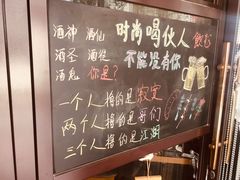 酒神 酒仙
时尚喝伙人
酒圣 酒徒
不能没有你
酒鬼 你是?
一个人撸的是寂寞
两个人撸的是哥们
三个人撸的是江湖